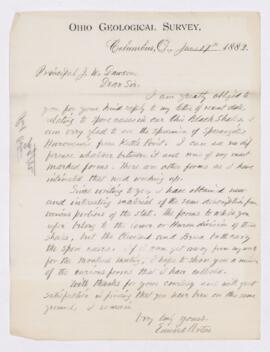 OHIO GEOLOGICAL SURVEY.
Columbus, O., June 17th 1882.
Principal J. W. Dawson
Dear Sir
I am greatly obliged to
you for your kind reply to my letter of recent date,
relating to spore cases in our Black Shale. I
am very glad to see the specimen of Sporangites
Huronensis from Kettle Point. I can see no dif-
ference whatever between it and one of my most
marked forms. There are other forms as I have
intimated that need working up.
Since writing to you I have obtained new
and interesting material of the same description from
various portions of the state. The forms to which you
refer belong to the lower or Huron division of the
shales, but the Cleveland and Erie both carry
the spore cases. If I can get away from my work
for the Montreal meeting, I hope to show you a number
of the curious forms that I have collected.
With thanks for your courtesy and with great
satisfaction in finding that you have been on the same
ground, I remain
Very truly yours
Edward Orton